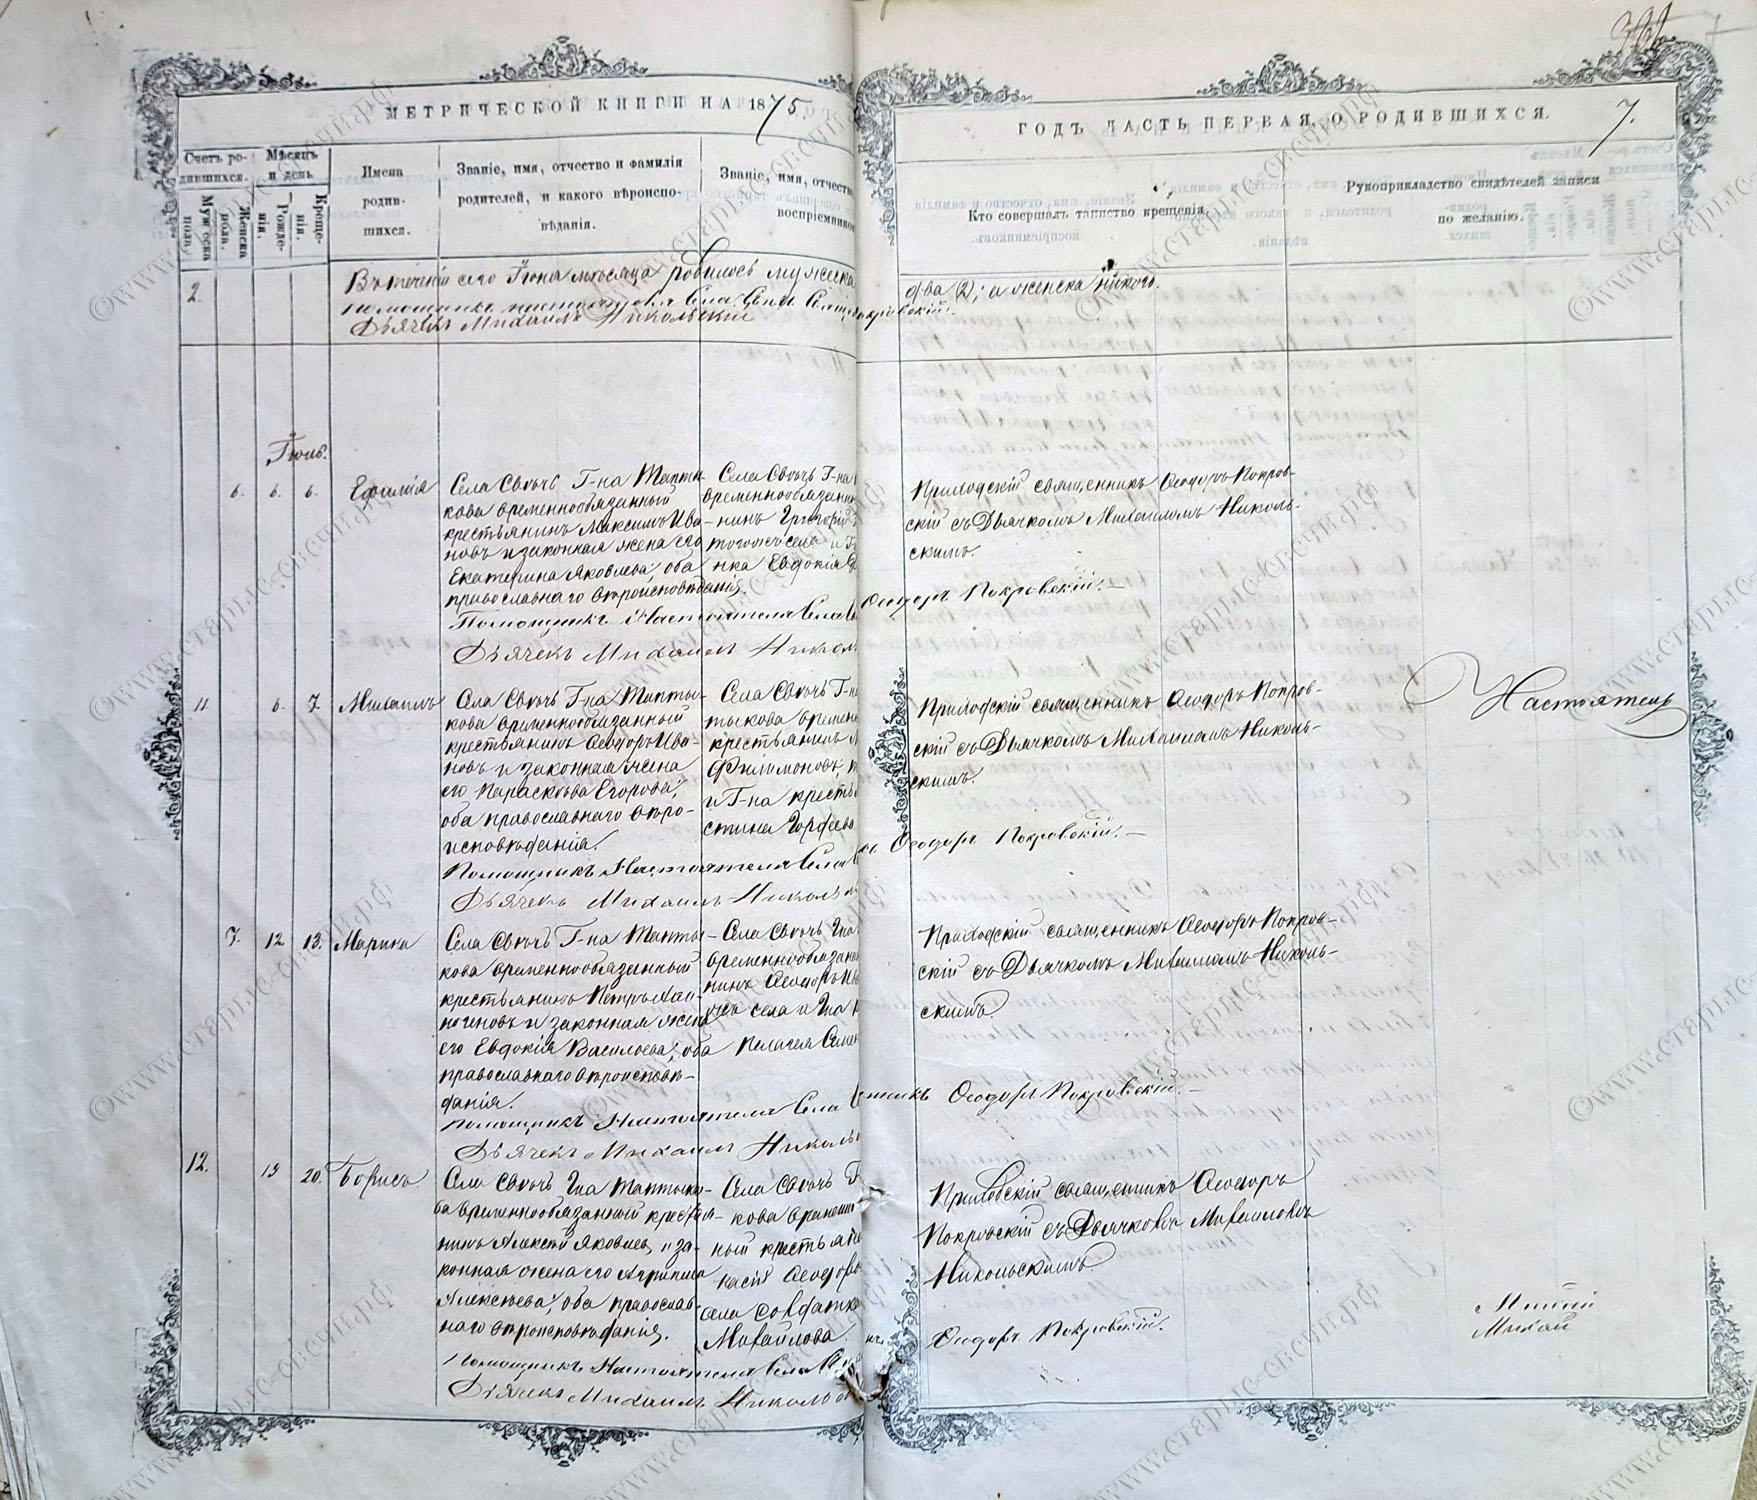 МЕТРИЧЕСКОЙ КНИГИ НА 1875
ГОДЪ ЧАСТЬ ПЕРВАЯ, О РОДИВШИХСЯ.
7.
Счетъ родившихся.
Мужеска пола.
Женска пола.
Мѣсяцъ и день
Рожденія.
Крещенія.
Имена
родив-
шихся.
Званіе, имя, отчество и фамилія
родителей, и какого вѣроиспо-
вѣданія.
Званіе, имя, отчество
воспріемников
Кто совершалъ таинство крещенія.
Рукоприкладство свидѣтелей записи
по желанію.
2.
Въ теченіи сего Іюня мѣсяца родилось мужеска
два (2); а женска никого.
Помощникъ настоятеля Села Свѣчь Священ
Покровскій.
Дьячекъ Михаилъ Никольскій
Іюль.
6. 6. 6. Евфимія
Села Свѣчь Г-на Тапты-
кова временнообязанный
крестьянинъ Максимъ Ива-
новъ и законная жена его
Екатерина Яковлева, оба
православнаго вѣроисповѣданія.
Села Свѣчь Г-на
временнообязан
нинъ Григорій
тогожъ села и Г
нка Евдокія
Приходскій священникъ Ѳеодоръ Покров-
скій съ Дьячкомъ Михаиломъ Николь-
скимъ.
Помощникъ Настоятеля Села
Ѳеодоръ Покровскій.
Дьячекъ Михаилъ Никол
11 6. 7. Михаилъ
Села Свѣчь Г-на Тапты-
кова временнообязанный
крестьянинъ Ѳеодоръ Ива-
новъ и законная жена
его Параскева Егорова,
оба православнаго вѣро-
исповѣданія.
Села Свѣчь Г-на
тыкова времен
крестьянинъ
Филимоновъ,
и Г-на кресть
стина Гордѣева
Приходскій священникъ Ѳеодоръ Покров-
скій съ Дьячкомъ Михаиломъ Николь-
скимъ.
Настоятель
Помощникъ Настоятеля Села
Ѳеодоръ Покровскій.
Дьячекъ Михаилъ Николь
7. 12 13. Марина
Села Свѣчь Г-на Тапты-
кова временнообязанный
крестьянинъ Петръ
и законная жена
его Евдокія Васильева, оба
православнаго вѣроисповѣ-
данія.
Села Свѣчь Гна
временнообязан
нинъ Ѳеодоръ Ив
жъ села и Гна
Пелагея Семен
Приходскій священникъ Ѳеодоръ Покров-
скій съ Дьячкомъ Михаиломъ Николь-
скимъ
Помощникъ Настоятеля Села
Ѳеодоръ Покровскій.
Дьячекъ Михаилъ Николь
12. 19 20. Борисъ
Села Свѣчь Гна Таптыко-
ва временнообязанный кресть-
нинъ Алексѣй Яковлевъ, и за-
конная жена его Агрипина
Алексѣева, оба православ-
наго вѣроисповѣданія.
Села Свѣчь Г
кова времен
ный крестьян
насій Ѳеодоров
села Солдатка
Михайлова
Приходскій священникъ Ѳеодоръ
Покровскій съ Дьячкомъ Михаиломъ
Никольскимъ
Помощникъ Настоятеля Села
Ѳеодоръ Покровскій.
Дьячекъ Михаилъ Николь
©www.старыс-свсчи.рф